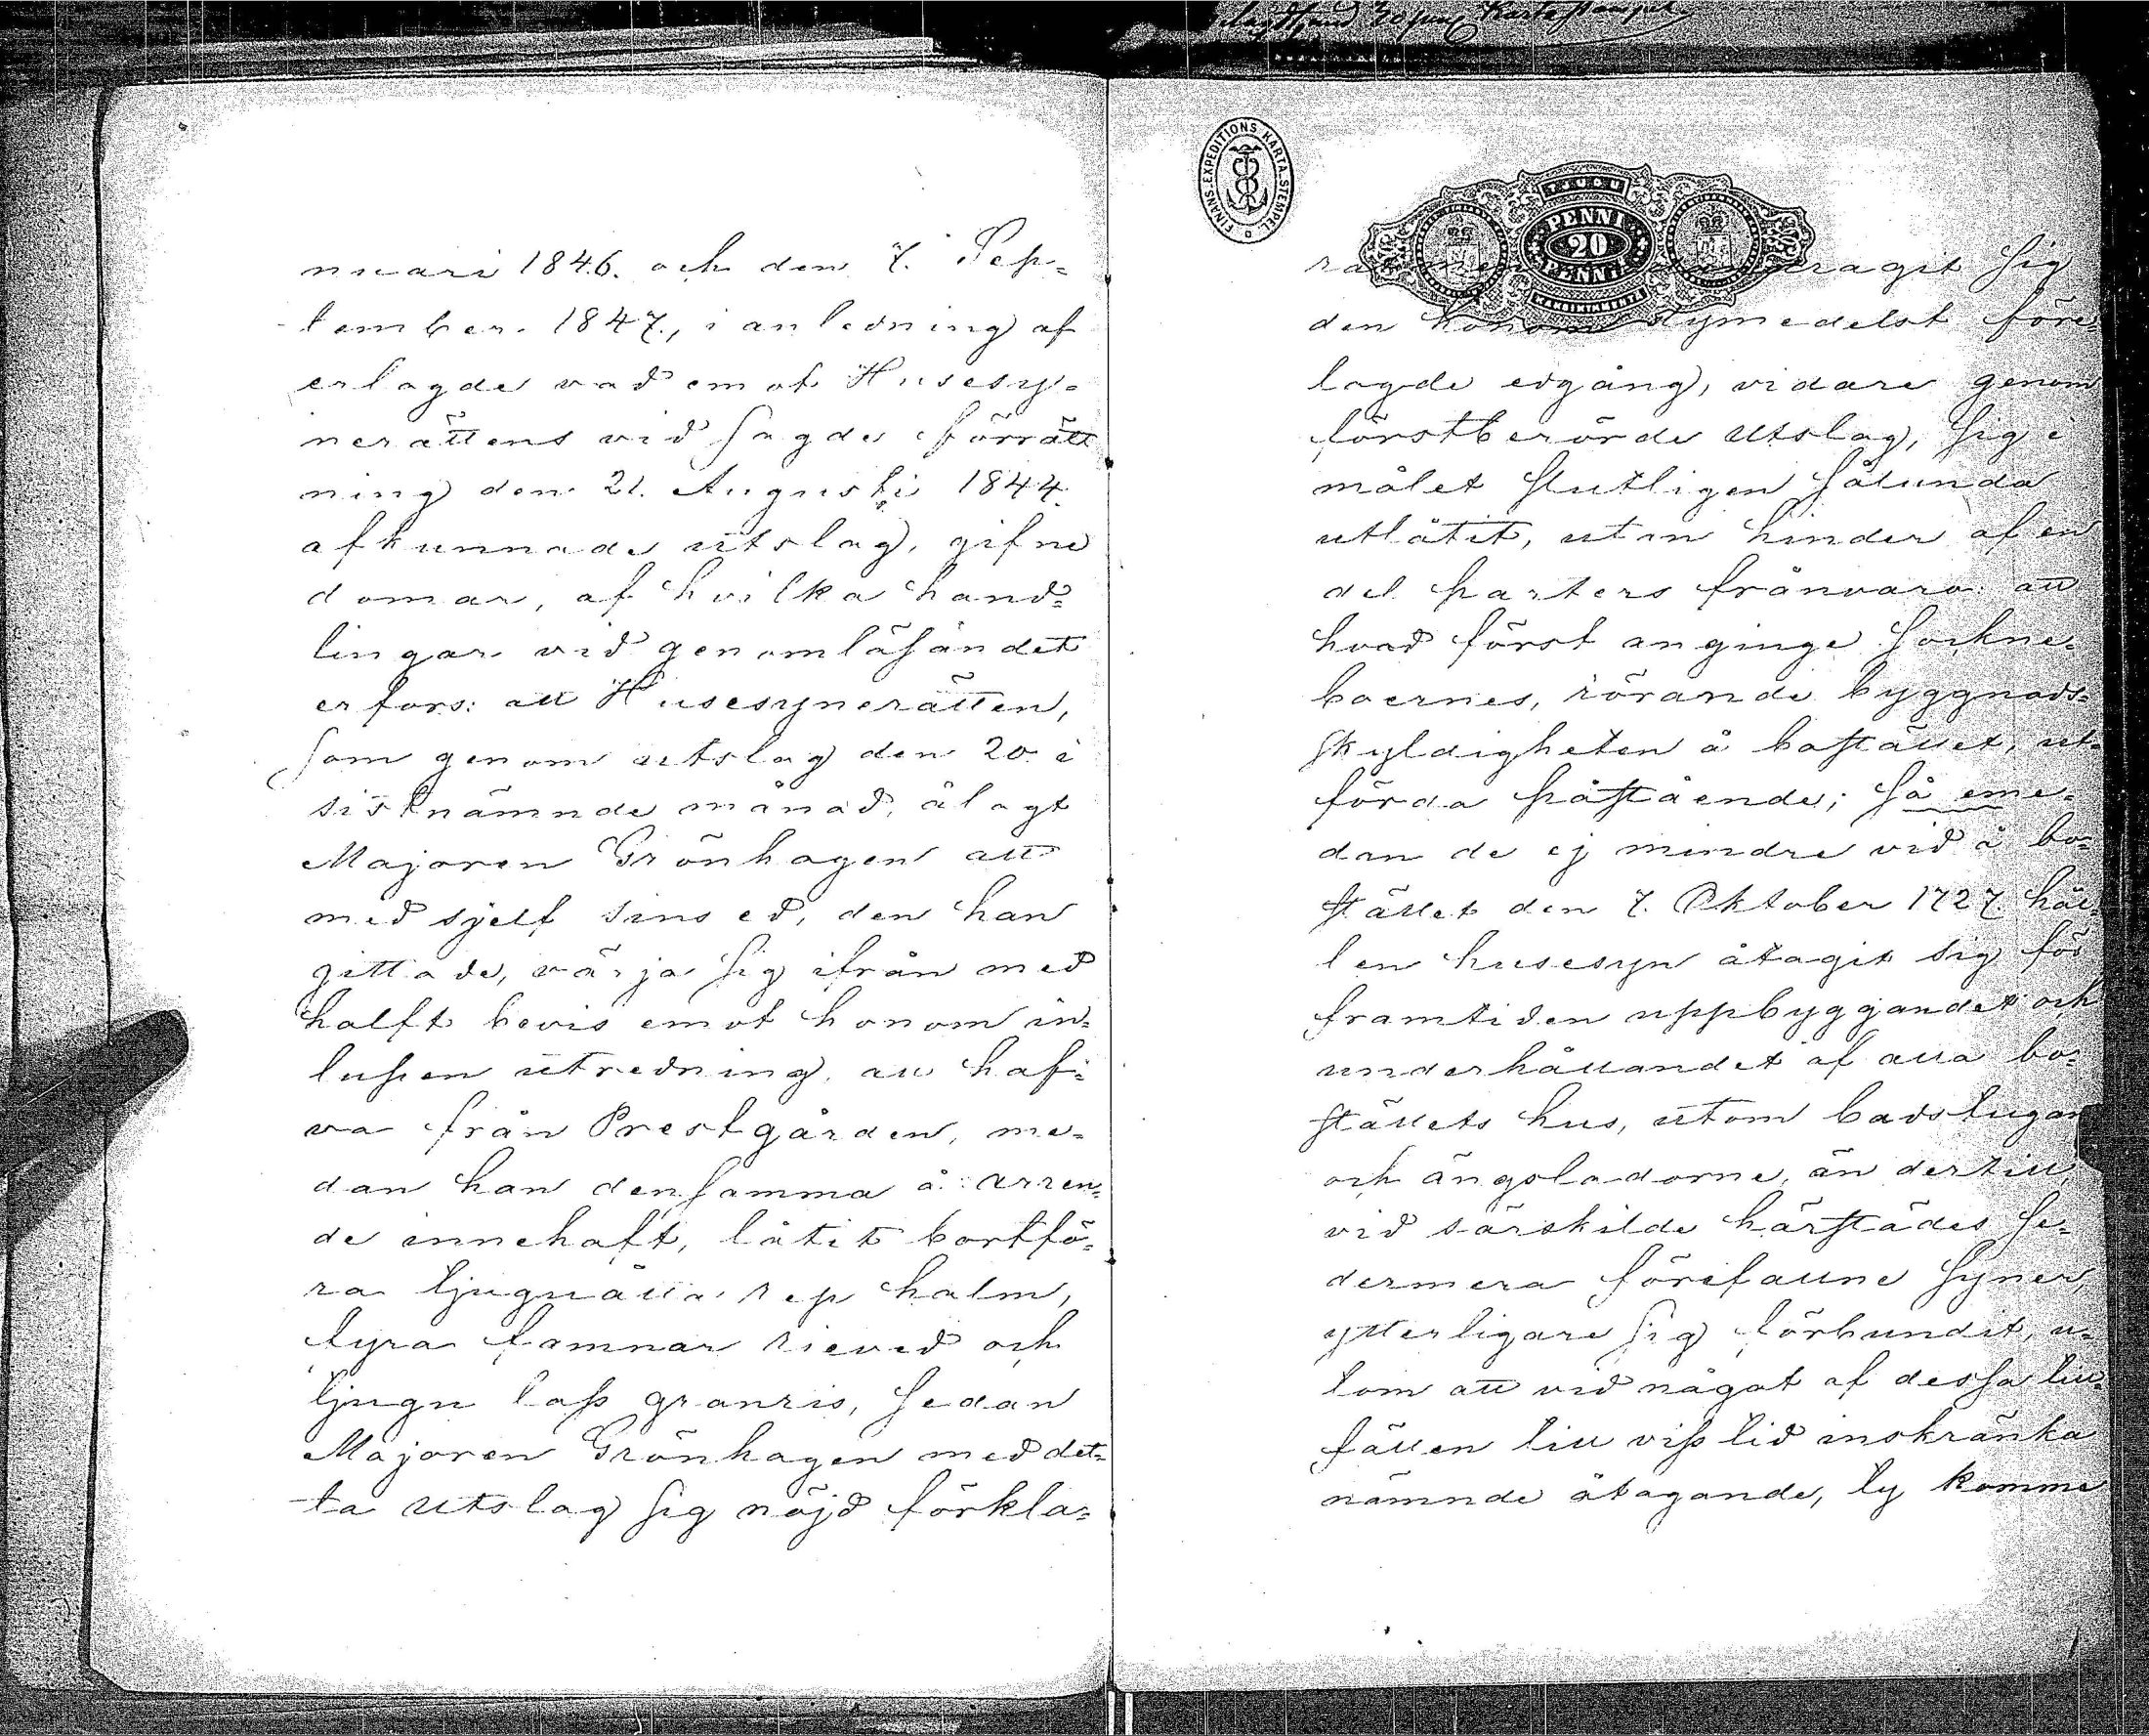 nuari 1846. och den 7. Sep=
tember 1847, i anledning af
erlagde vad emot Husesy=
nerättens vid sagde förrätt
ning den 21. Augusti 1844.
afkunnade utslag, gifne
domar, af hvilka hand=
lingar vid genomläsandet
erfors: att Husesynerätten,
som genom utslag den 20 i
sistnämnde månad, ålagt
Majoren Grönhagen att
med sjelf sins ed, den han
gittade, värja sig ifrån med
halft bevis emot honom in=
lupen utredning, att haf=
va från Prestgården, me=
dan han densamma å arren=
de innehaft, låtit bortfö=
ra tjuguåtta rep halm,
fyra famnar rieved och
tjugu lass granris, sedan
Majoren Grönhagen med det=
ta utslag sig nöjd förkla=
FINANS-EXPEDITIONS KARTA-STEMPEL
TJUGU
PENNI
20
PENNIÄ
KAKSIKYMMENTÄ
sig
den honom dymedelst före=
lagde edgång, vidare genom
förstberörde utslag, sig i
målet slutligen sålunda
utlåtit, utan hinder af en
del parters frånvaro: att
hvad först anginge Sockne=
boernes, rörande byggnads=
skyldigheten å bostället, ut=
förda påstående; så eme=
dan de ej mindre vid å bo=
stället den 7. Oktober 1727. hål=
len husesyn åtagit sig för
framtiden uppbyggandet och
underhållandet af alla bo=
ställets hus, utom badstugan
och ängsladorne, än dertill,
vid särskilde härstädes se=
dermera förefallne syner,
ytterligare sig förbundit, u=
tom att vid något af dessa till=
fällen till viss tid inskränka
nämnde åtagande, ty komme